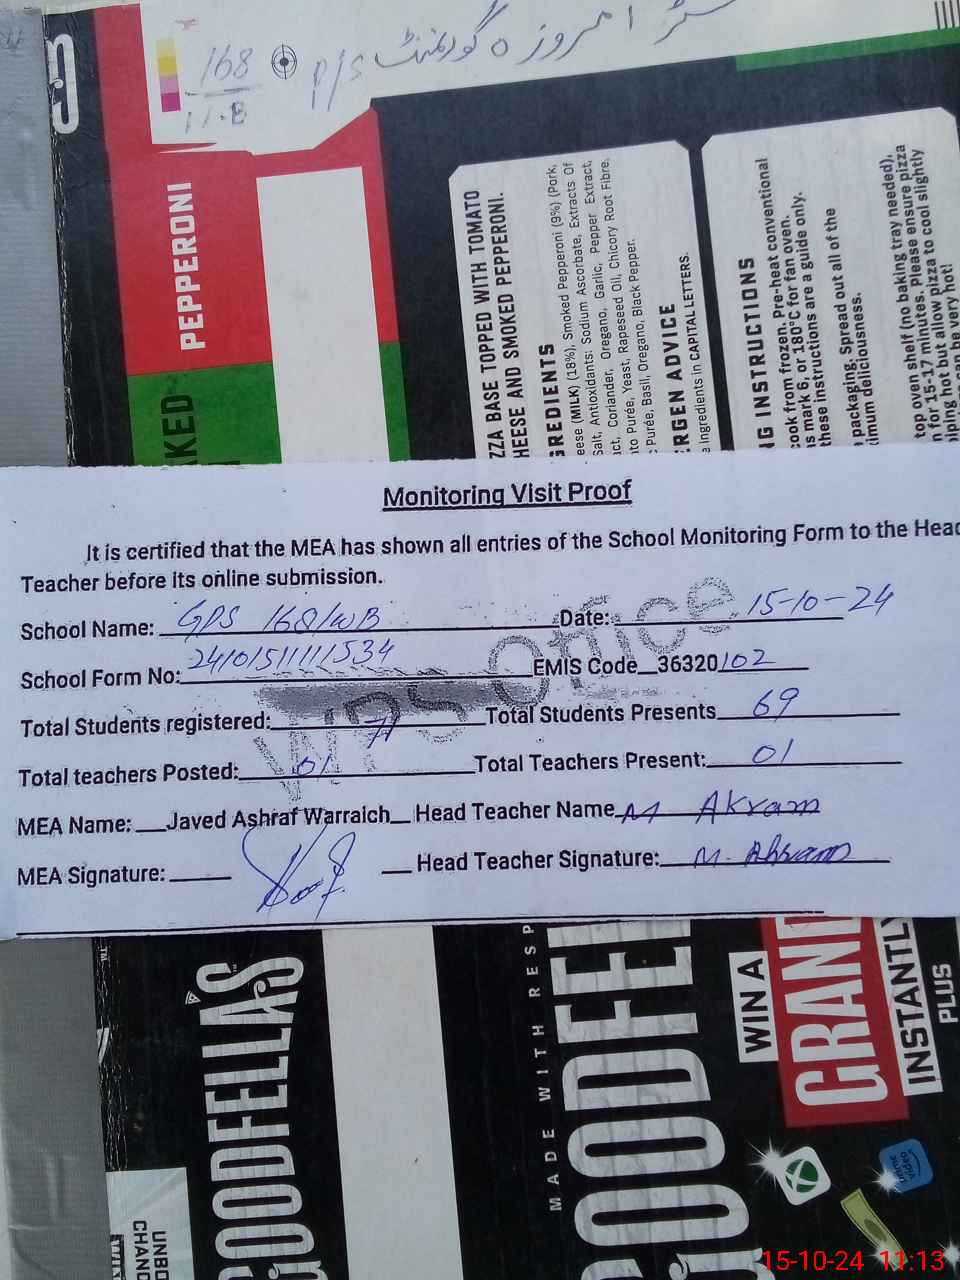 168
11.B
P/S
گورمنٹ
PEPPERONI
KED
ZZA BASE TOPPED WITH TOMATO
HEESE AND SMOKED PEPPERONI.
GREDIENTS
eese (MILK) (18%), Smoked Pepperoni (9%) (Pork,
Salt, Antioxidants: Sodium Ascorbate, Extracts Of
ct, Coriander, Oregano, Garlic, Pepper Extract,
to Purée, Yeast, Rapeseed Oil, Chicory Root Fibre,
Purée, Basil, Oregano, Black Pepper.
RGEN ADVICE
Ingredients in CAPITAL LETTERS.
NG INSTRUCTIONS
cook from frozen. Pre-heat conventional
s mark 6, or 180°C for fan oven.
these instructions are a guide only.
packaging. Spread out all of the
ximum deliciousness.
top oven shelf (no baking tray needed),
n for 15-17 minutes. Please ensure pizza
iping hot but allow pizza to cool slightly
can be very hot!
Monitoring Visit Proof
It is certified that the MEA has shown all entries of the School Monitoring Form to the Head
Teacher before its online submission.
School Name: GPS 168/WB Date: 15-10-24
School Form No: 24101511111534 EMIS Code 36320102
Total Students registered: 71 Total Students Presents 69
Total teachers Posted: 01 Total Teachers Present: 01
MEA Name: Javed Ashraf Warraich Head Teacher Name M Akram
MEA Signature: Head Teacher Signature: M. Akram
WPS Office
GOODFELLA'S
MADE WITH RESP
GOODFEL
WIN A
GRAND
INSTANTLY
PLUS
prime video
UNBO
CHANC
15-10-24 11:13